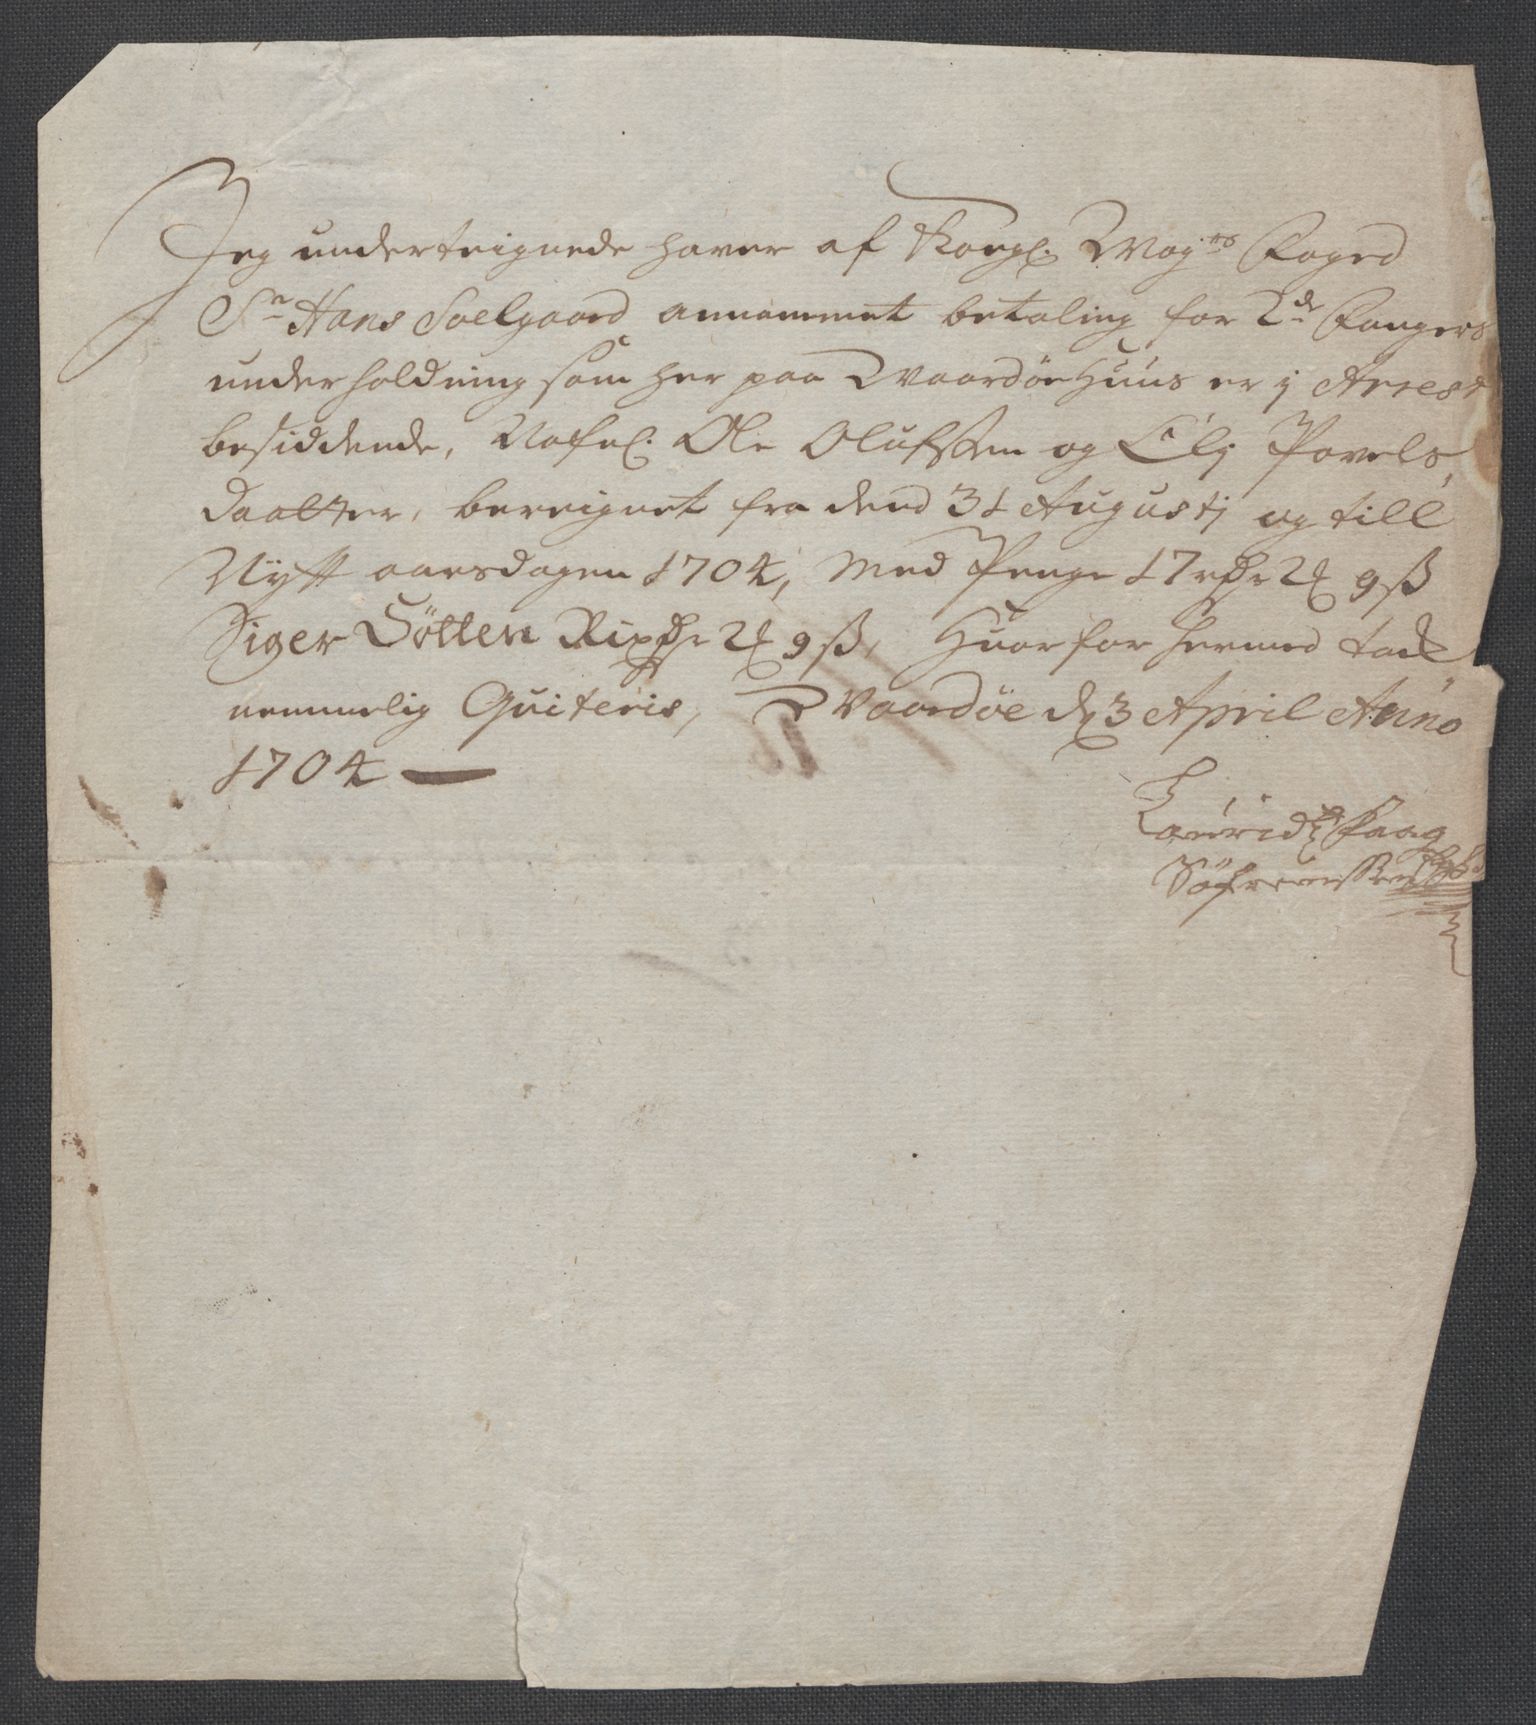 Jeg underteignede haver af Kongl. Maytts Foged
Sr Hans Soelgaard annammet betaling for 2de Fangers
underholdning som her paa Waardöehuus er j Arrest
besiddende, Nafnl. Ole Olufssen og Elj Povels
daatter, bereignet fra dend 31 Augustj og till
Nytt aarsdagen 1704, Med Penge 17 rdr 2 ℳ 9 ß
Siger Sötten Rixdr 2 ℳ 9 ß, Huorfor hermed tack
nemmelig Quiteris, Waardöe d 3 April Anno
1704
Lauridz
Söfrenssen